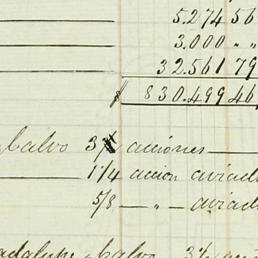 5.274 56
3.000 " "
32.561 79
$ 830.499 46
Calvo 3/4 acciones
1 1/4 accion aviad
5/8 — " — aviad
Guadalupe Calvo 3 1/2